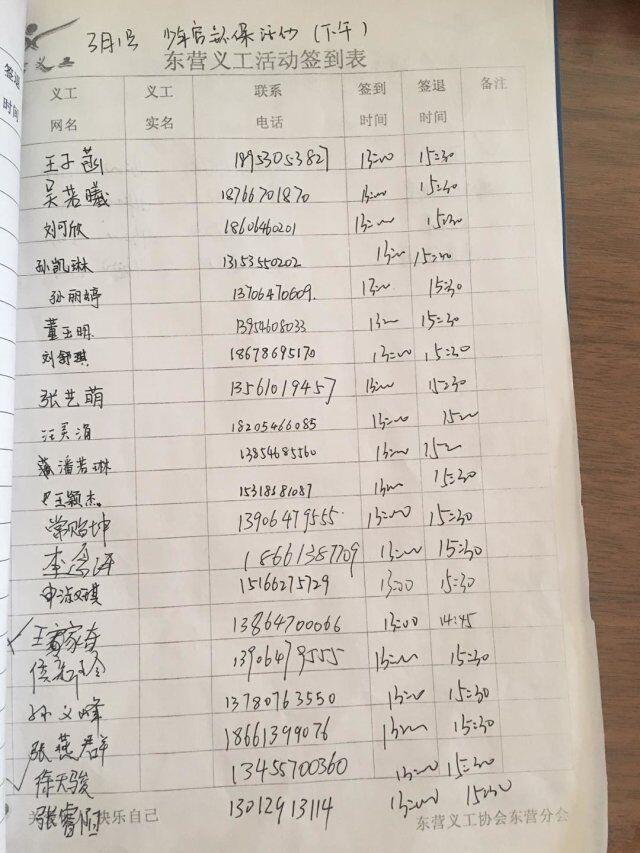 3月1号 少年宫环保活动(下午)
东营义工活动签到表
签退
时间
义工 义工 联系 签到 签退 备注
网名 实名 电话 时间 时间
王子菡 18953053827 13:00 15:30
吴若曦 18766701870 13:00 15:30
刘可欣 18606460201 13:00 15:30
孙凯琳 13153550202 13:00 15:30
孙丽婷 13706470609. 13:00 15:30
董玉明 13954608033 13:00 15:30
刘舒琪 18678695170 13:00 15:30
张艺萌 13561019457 13:00 15:30
18205466085 13:00 15:00
潘若琳 13854685560 13:00 15:00
王颖杰。 15318381087 13:00 15:30
常贻坤 13906479555. 13:00 15:30
18661387709 13:00 15:30
15166275729 13:00 15:30
13864700066 13:00 14:45
13906479555 13:00 15:30
孙义峰 13780763550 13:00 15:30
张燕群 18661399076 13:00 15:30
徐天骏 13455700360 13:00 15:30
张睿 13012913114 13:00 15:30
快乐自己 东营义工协会东营分会